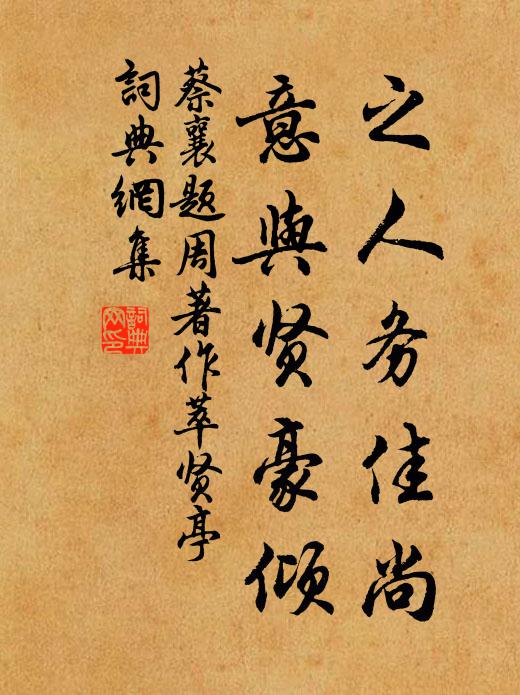 之人务佳尚
意與贤豪傾
蔡襄题周著作萃贤亭
詞典網集
詞典
网印